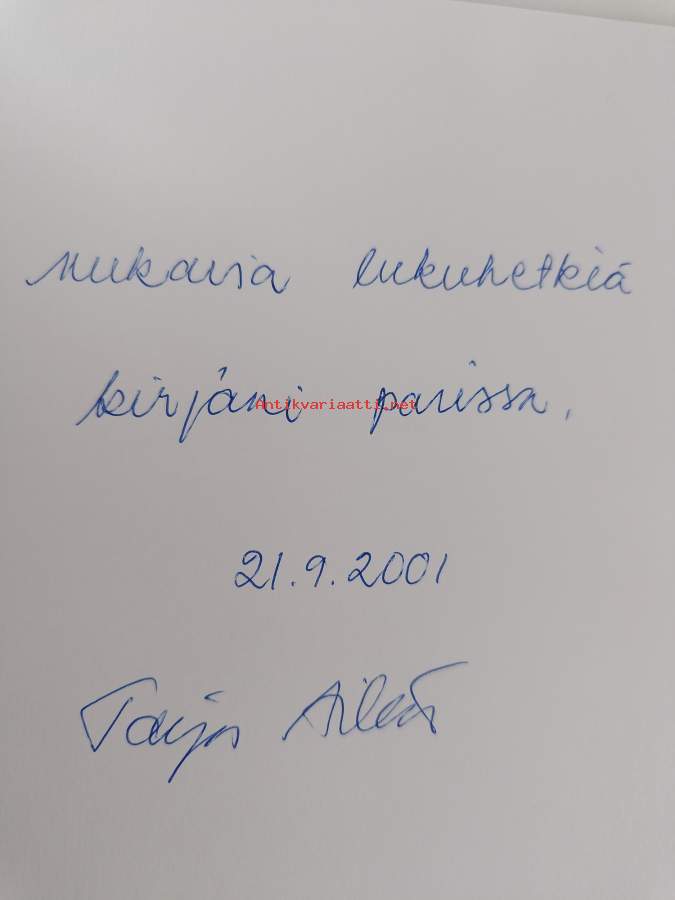 Mukavia lukuhetkiä
kirjani parissa.
Antikvariaatti.net
21.9.2001
Taija